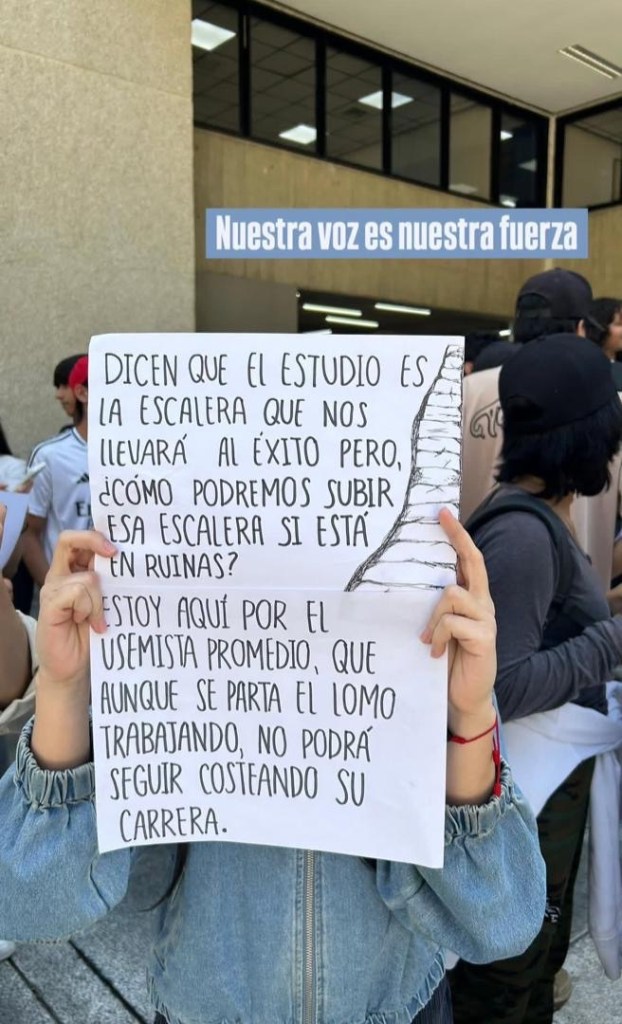 Nuestra voz es nuestra fuerza
DICEN QUE El ESTUDIO ES
LA ESCALERA QUE NOS
LLEVARÁ AL ÉXITO PERO,
¿CÓMO PODREMOS SUBIR
ESA ESCALERA SI ESTÁ
EN RUINAS?
ESTOY AQUÍ POR EL
USEMISTA PROMEDIO, QUE
AUNQUE SE PARTA EL LOMO
TRABAJANDO, NO PODRÁ
SEGUIR COSTEANDO SU
CARRERA.